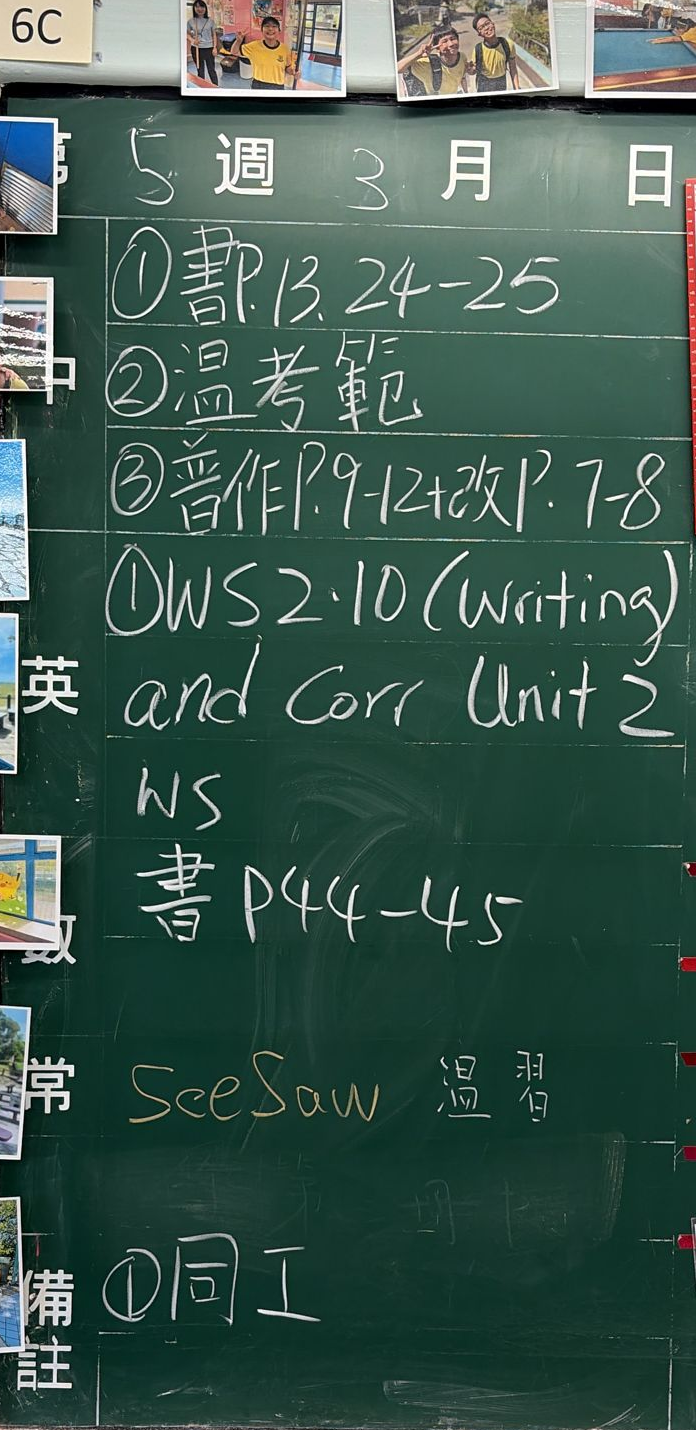 6C
第 5 週 3 月 日
①書P.13, 24-25
中 ②温考範
③普作P.9-12+改P.7-8
①WS 2.10 (Writing)
英 and Corr Unit 2
WS
數 書 P44-45
常 SeeSaw 温習
備註 ①同工